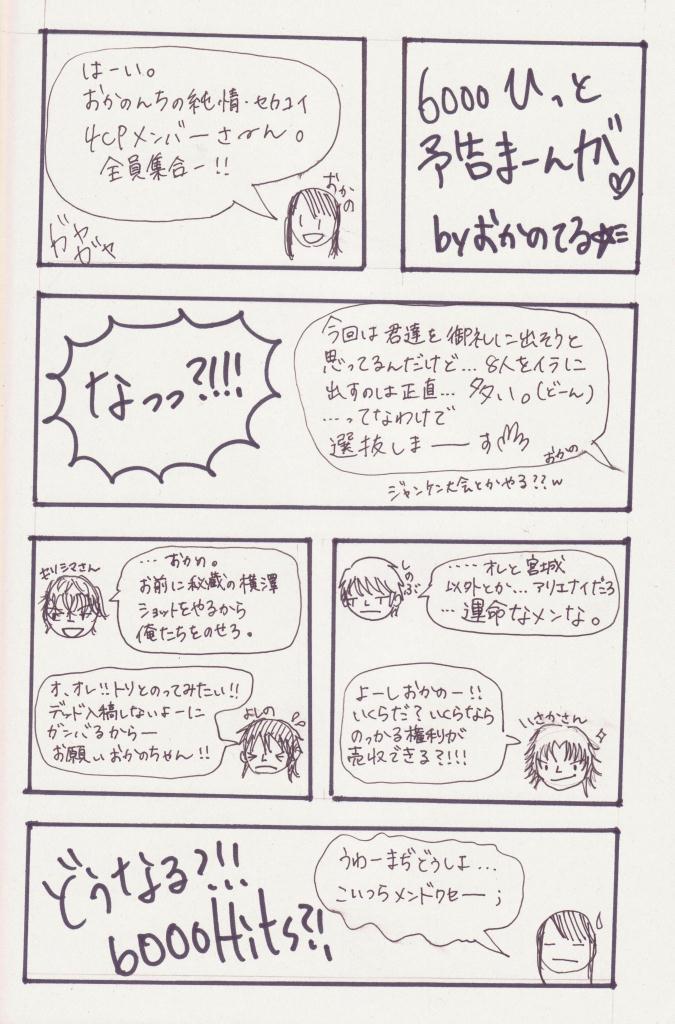 6000ひっと
予告まーんが♡
byおかのてる
はーい。
おかのんちの純情・セカコイ
4CPメンバーさーん。
全員集合ー!!
おかの
ガヤ
ガヤ
なっっ?!!!
今回は君達を御礼に出そうと
思ってるんだけど… 8人をイラに
出すのは正直… 多い。(どーん)
…ってなわけで
選抜しまーーす
おかの
ジャンケン大会とかやる??w
しのぶ
……オレと宮城
以外とか…アリエナイだろ
…運命なメンな。
よーしおかのー!!
いくらだ?いくらなら
のっかる権利が
売収できる?!!!
いさかさん
キリシマさん
…おかの。
お前に秘蔵の横澤
ショットをやるから
俺たちをのせろ。
オ、オレ!!トリとのってみたい!!
デッド入稿しないよーに
ガンバるからー
お願いおかのちゃん!!
よしの
どうなる?!!
6000Hits?!
うわーまぢどうしよ…
こいつらメンドクセー;